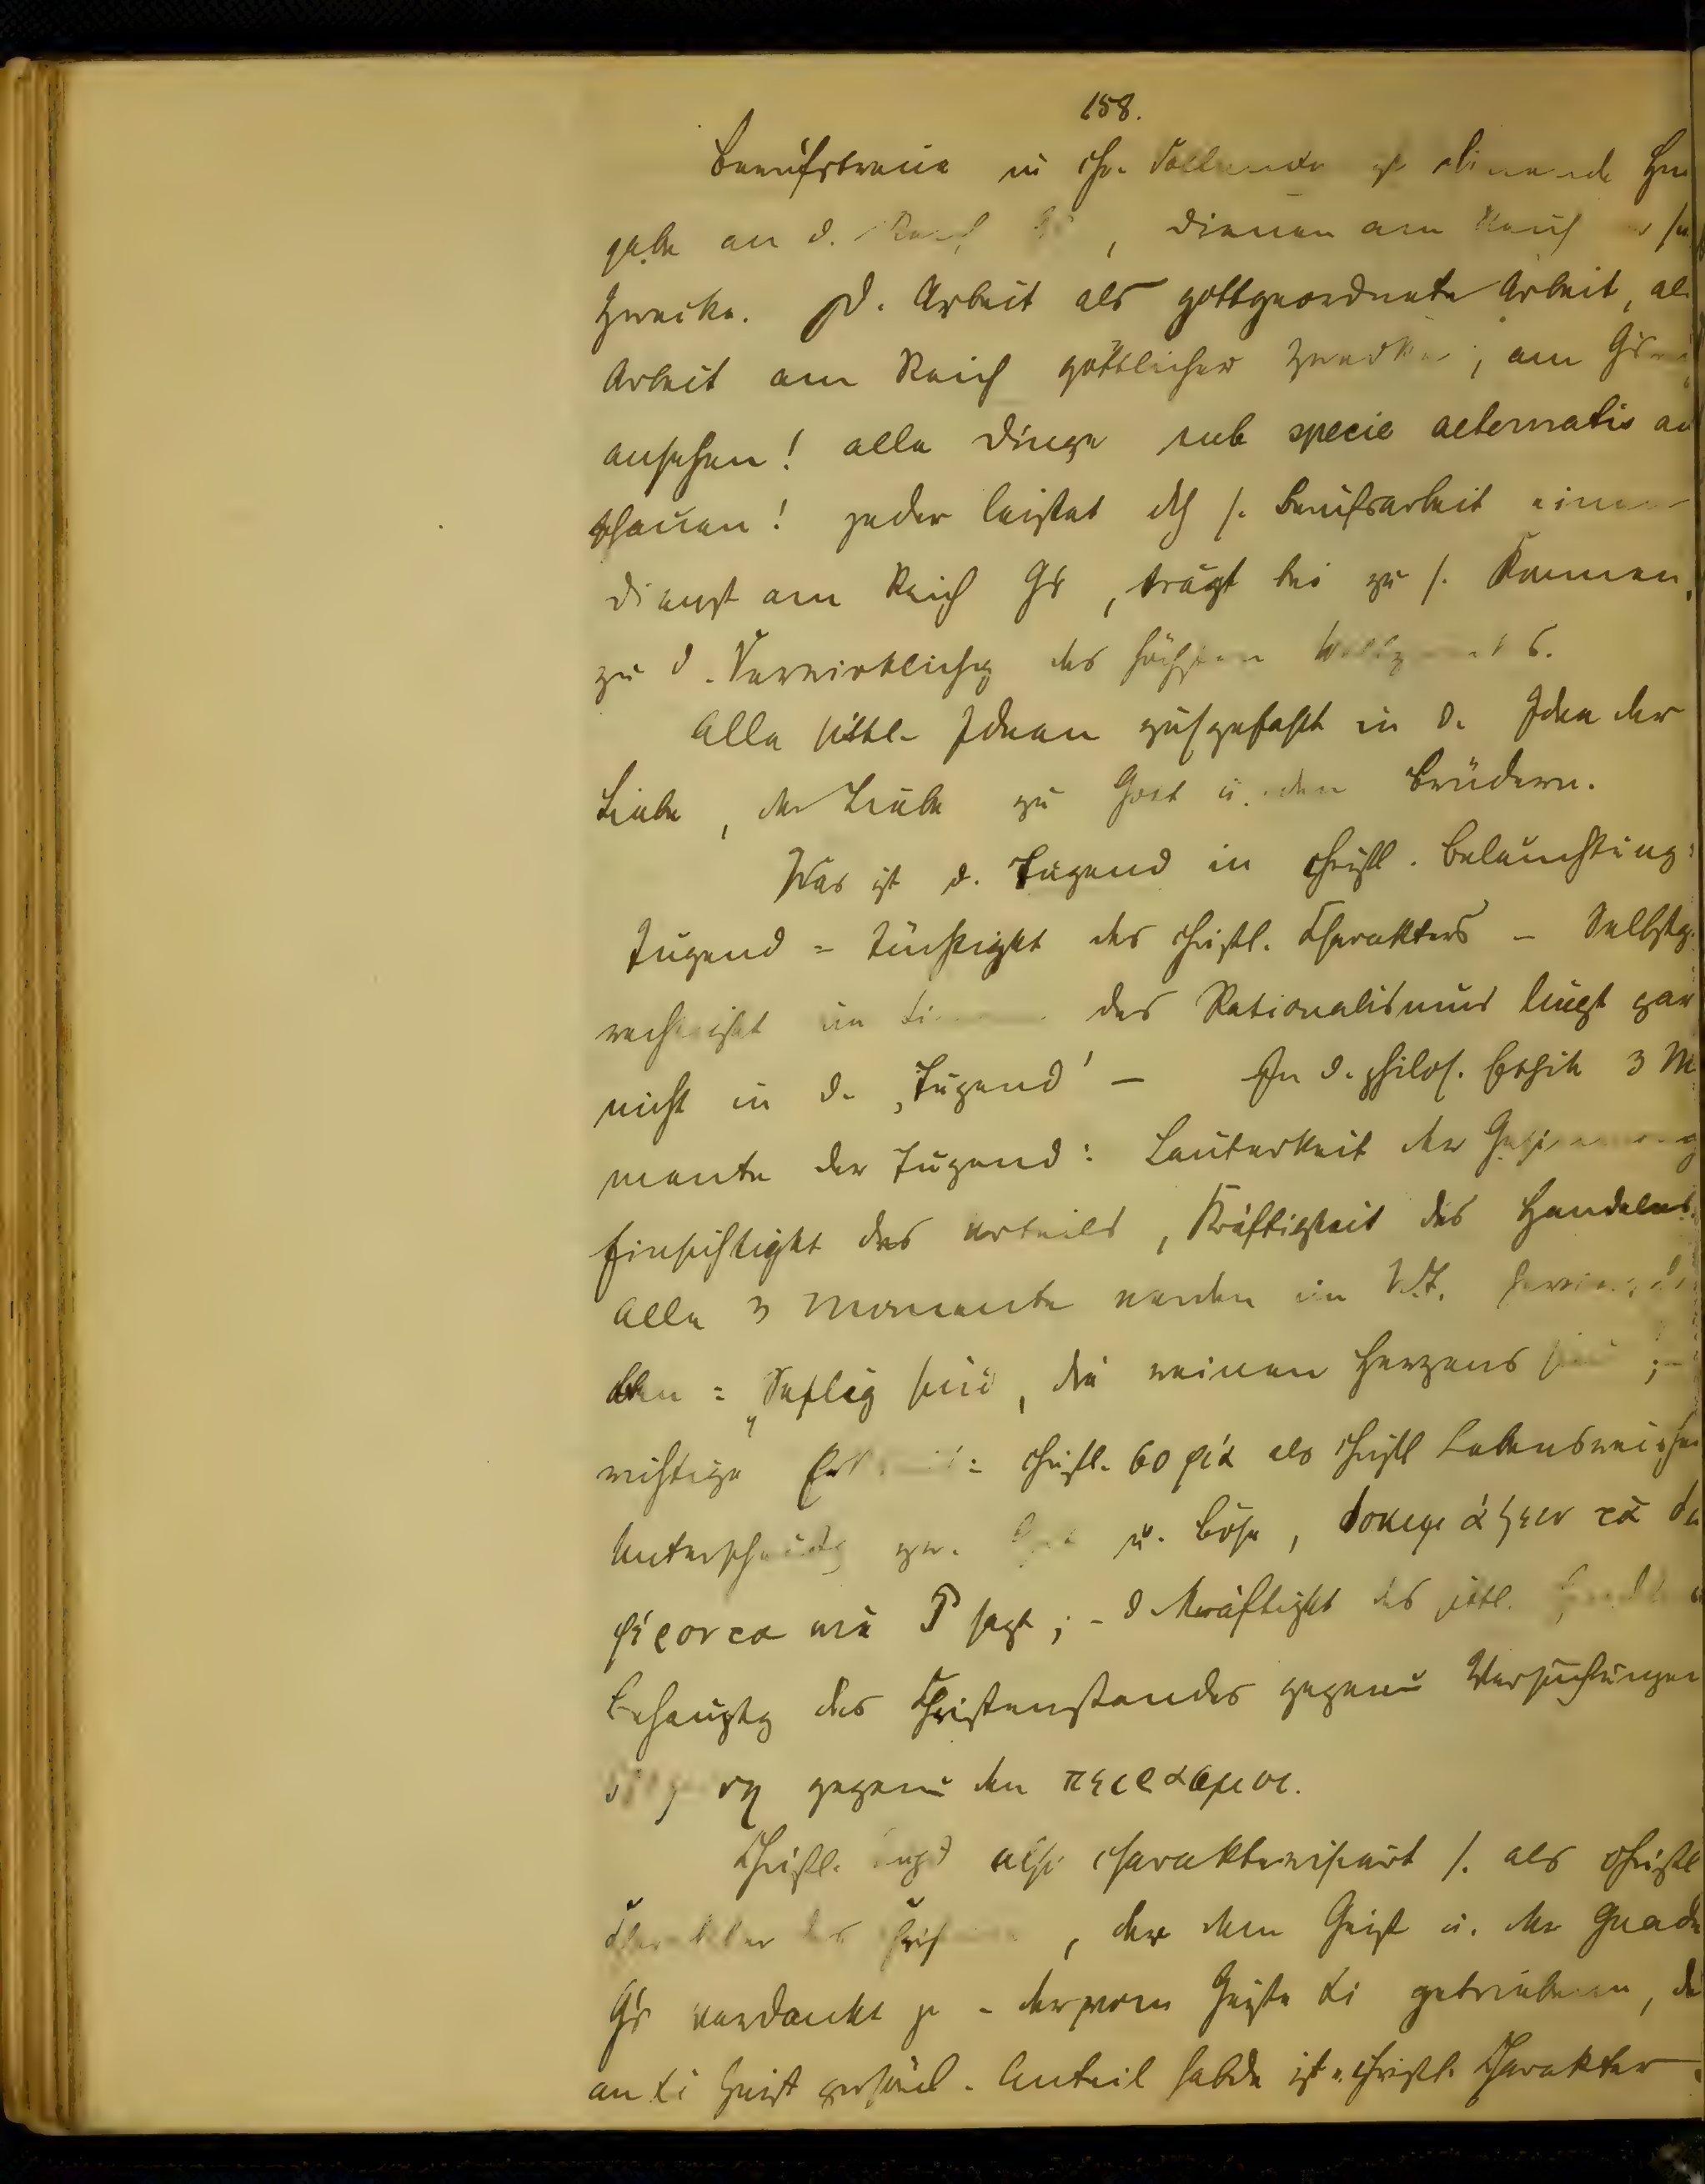 158.
Berufstreue in ihr. Vollendg ist dienende Hin
gabe an d. Reich Gs, dienen am Reich
Zwecke. D. Arbeit als gottgeordnete Arbeit, als
Arbeit am Reich göttlicher Zwecke, am Gs
ansehen! alle Dinge sub specie aeternatis an
schauen! jeder leistet dch s. Berufsarbeit einen
Dienst am Reich Gs, trägt bei zu s. Kommen,
zu d. Verwirklichg des höchsten
Alle sittl. Ideen zusgefaßt in d. Idee der
Liebe, der Liebe zu Gott u. den Brüdern.
Was ist d. Tugend in christl. Beleuchtung:
Tugend = Tüchtigkt des christl. Charakters – Selbstg.
rechtigkt im Sinne des Rationalismus liegt gar
nicht in d. „Tugend' – In d. philos. Ethik 3 Mo
mente der Tugend: Lauterkeit der Gesinnung
Einsichtigkt des Urteils, Kräftigkeit des Handelns.
Alle 3 Momente werden im N.T.
ben: „Selig sind, die reinen Herzens sind;–
richtige christl. σοφία als christl Lebensweishei
Unterscheidg zw. Gut u. Böse, δοκιμάζειν τὰ δια
φέροντα wie P sagt; – d Kräftigkt des sittl.
Behauptg des Christenstandes gegenü Versuchungen
gegenü den πειρασμοι.
Christl. Tugd also charakterisiert s. als christl
Charakter des , der dem Geist u. der Gnade
Gs verdankt ist – der vom Geiste Xi getriebenen, der
an Xi Geist persönl. Anteil habde ist e. christl. Charakter